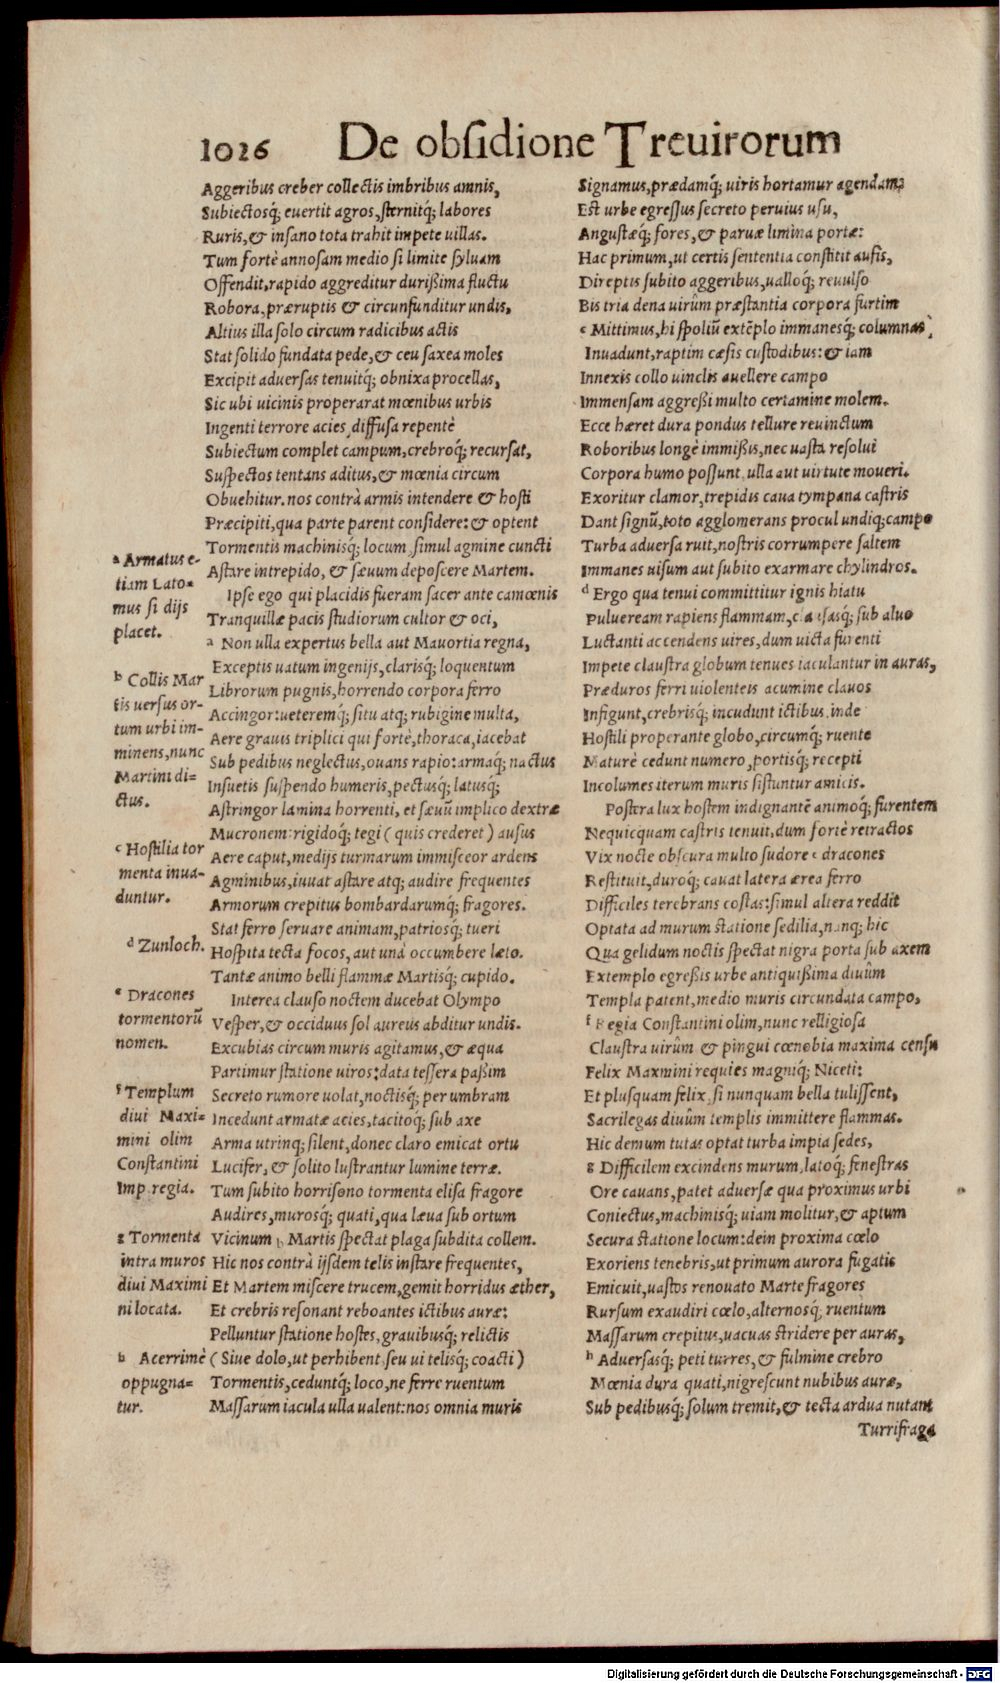 1026 De obsidione Treuirorum
Aggeribus creber collectis imbribus amnis,
Subiectosq́; euertit agros, sternitq́; labores
Ruris, & insano tota trahit impete uillas.
Tum fortè annosam medio si limite syluam
Offendit, rapido aggreditur durißima fluctu
Robora, præruptis & circunfunditur undis,
Altius illa solo circum radicibus actis
Stat solido fundata pede, & ceu saxea moles
Excipit aduersas tenuitq́; obnixa procellas,
Sic ubi uicinis properarat mœnibus urbis
Ingenti terrore acies, diffusa repentè
Subiectum complet campum, crebroq́; recursat,
Suspectos tentans aditus, & mœnia circum
Obuehitur. nos contrà armis intendere & hosti
Præcipiti, qua parte parent considere: & optent
Tormentis machinisq́; locum, simul agmine cuncti
Astare intrepido, & sæuum deposcere Martem.
Ipse ego qui placidis fueram sacer ante camœnis
Tranquillæ pacis studiorum cultor & oci,
a Non ulla expertus bella aut Mauortia regna,
Exceptis uatum ingenijs, clarisq́; loquentum
Librorum pugnis, horrendo corpora ferro
Accingor: ueteremq́; situ atq; rubigine multa,
Aere grauis triplici qui fortè, thoraca, iacebat
Sub pedibus neglectus, ouans rapio: armaq́; nactus
Insuetis suspendo humeris, pectusq́; latusq́;
Astringor lamina horrenti, et sæuũ implico dextræ
Mucronem: rigidoq́; tegi ( quis crederet ) ausus
Aere caput, medijs turmarum immisceor ardens
Agminibus, iuuat astare atq; audire frequentes
Armorum crepitus bombardarumq́; fragores.
Stat ferro seruare animam, patriosq́; tueri
Hospita tecta focos, aut unà occumbere læto.
Tantæ animo belli flammæ Martisq́; cupido.
Interea clauso noctem ducebat Olympo
Vesper, & occiduus sol aureus abditur undis.
Excubias circum muris agitamus, & æqua
Partimur statione uiros: data tessera paßim
Secreto rumore uolat, noctisq́; per umbram
Incedunt armatæ acies, tacitoq́; sub axe
Arma utrinq; silent, donec claro emicat ortu
Lucifer, & solito lustrantur lumine terræ.
Tum subito horrisono tormenta elisa fragore
Audires, murosq́; quati, qua læua sub ortum
Vicinum b Martis spectat plaga subdita collem.
Hic nos contrà ijsdem telis instare frequentes,
Et Martem miscere trucem, gemit horridus æther,
Et crebris resonant reboantes ictibus auræ:
Pelluntur statione hostes, grauibusq́; relictis
( Siue dolo, ut perhibent, seu ui telisq́; coacti )
Tormentis, ceduntq́; loco, ne ferre ruentum
Massarum iacula ulla ualent: nos omnia muris
a Armatus e-
tiam Lato-
mus si dijs
placet.
b Collis Mar
tis uersus or-
tum urbi im-
minens, nunc
Martini di-
ctus.
c Hostilia tor
menta inua-
duntur.
d Zunloch.
e Dracones
tormentorũ
nomen.
f Templum
diui Maxi-
mini olim
Constantini
Imp. regia.
g Tormenta
intra muros
diui Maximi
ni locata.
h Acerrimè
oppugna-
tur.
Signamus, prædamq́; uiris hortamur agendam:
Est urbe egressus secreto peruius usu,
Angustæq́; fores, & paruæ limina portæ:
Hac primum, ut certis sententia constitit ausis,
Direptis subito aggeribus, ualloq́; reuulso
Bis tria dena uirûm præstantia corpora furtim
c Mittimus, hi spoliũ extẽplo immanesq́; columnas
Inuadunt, raptim cæsis custodibus: & iam
Innexis collo uinclis auellere campo
Immensam aggreßi multo certamine molem.
Ecce hæret dura pondus tellure reuinctum
Roboribus longè immißis, nec uasta resolui
Corpora humo possunt, ulla aut uirtute moueri.
Exoritur clamor, trepidis caua tympana castris
Dant signũ, toto agglomerans procul undiq; campo
Turba aduersa ruit, nostris corrumpere saltem
Immanes uisum aut subito exarmare chylindros.
d Ergo qua tenui committitur ignis hiatu
Pulueream rapiens flammam, sub aluo
Luctanti accendens uires, dum uicta furenti
Impete claustra globum tenues iaculantur in auras,
Præduros ferri uiolenteis acumine clauos
Infigunt, crebrisq́; incudunt ictibus, inde
Hostili properante globo, circumq́; ruente
Maturè cedunt numero, portisq́; recepti
Incolumes iterum muris sistuntur amicis.
Postera lux hostem indignantẽ animoq́; furentem
Nequicquam castris tenuit, dum fortè retractos
Vix nocte obscura multo sudore e dracones
Restituit, duroq́; cauat latera ærea ferro
Difficiles terebrans costas: simul altera reddit
Optata ad murum statione sedilia, nanq; hic
Qua gelidum noctis spectat nigra porta sub axem
Extemplo egreßis urbe antiquißima diuûm
Templa patent, medio muris circundata campo,
f Regia Constantini olim, nunc relligiosa
Claustra uirûm & pingui cœnobia maxima censu
Felix Maxmini requies magniq́; Niceti:
Et plusquam felix, si nunquam bella tulissent,
Sacrilegas diuûm templis immittere flammas.
Hic demum tutas optat turba impia sedes,
g Difficilem excindens murum, latoq́; fenestras
Ore cauans, patet aduersæ qua proximus urbi
Coniectus, machinisq́; uiam molitur, & aptum
Secura statione locum: dein proxima cœlo
Exoriens tenebris, ut primum aurora fugatis
Emicuit, uastos renouato Marte fragores
Rursum exaudiri cœlo, alternosq́; ruentum
Massarum crepitus, uacuas stridere per auras,
h Aduersasq́; peti turres, & fulmine crebro
Mœnia dura quati, nigrescunt nubibus auræ,
Sub pedibusq́; solum tremit, & tecta ardua nutant
Turrifraga
Digitalisierung gefördert durch die Deutsche Forschungsgemeinschaft - DFG